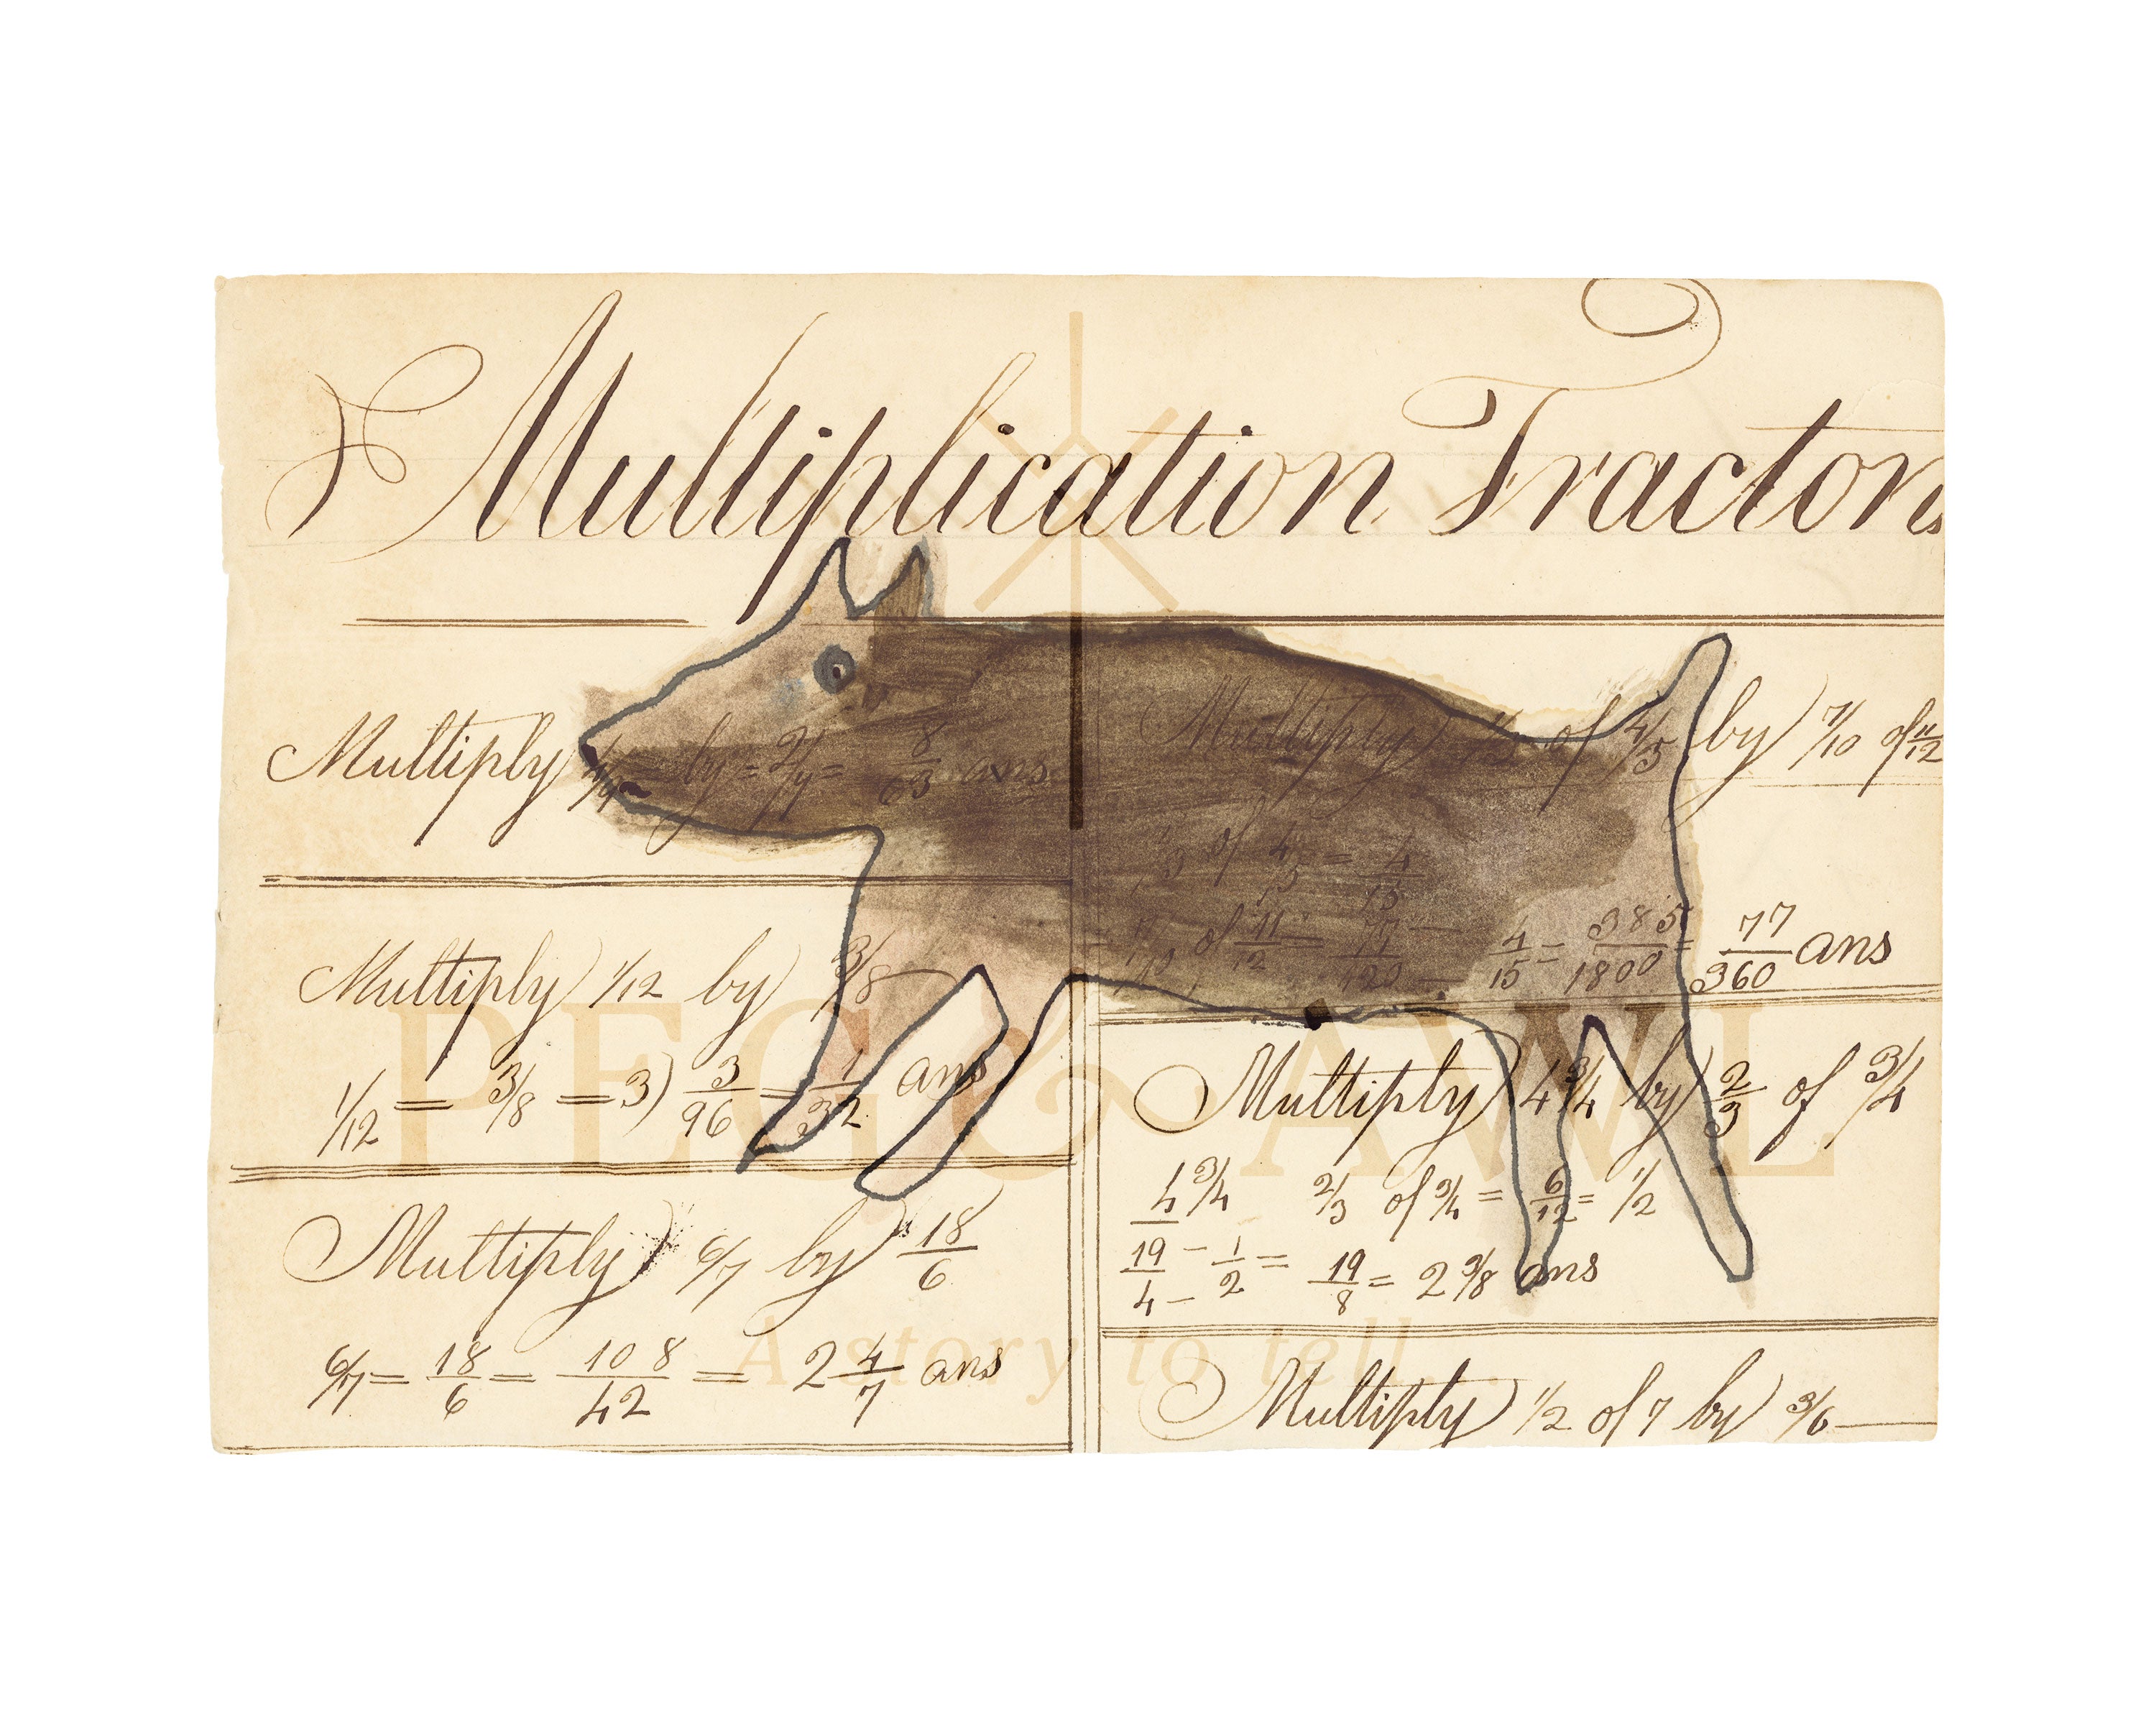 Multiplication Fractons
Multiply 4/9 = by = 2/7 = 8/63 ans
Multiply 1/12 by 3/8
1/12 = 3/8 = 3) 3/96 = 1/32 ans
Multiply 6/7 by 18/6
6/7 = 18/6 = 108/42 = 2 4/7 ans
Multiply 1/3 of 4/5 by 7/10 of 11/12
1/3 of 4/5 = 4/15
7/10 of 11/12 = 77/120 — 4/15 = 385/1800 = 77/360 ans
Multiply 4 3/4 by 2/3 of 3/4
4 3/4 2/3 of 3/4 = 6/12 = 1/2
19/4 – 1/2 = 19/8 = 2 3/8 ans
Multiply 1/2 of 7 by 3/6
PEG & AWL
A story to tell...